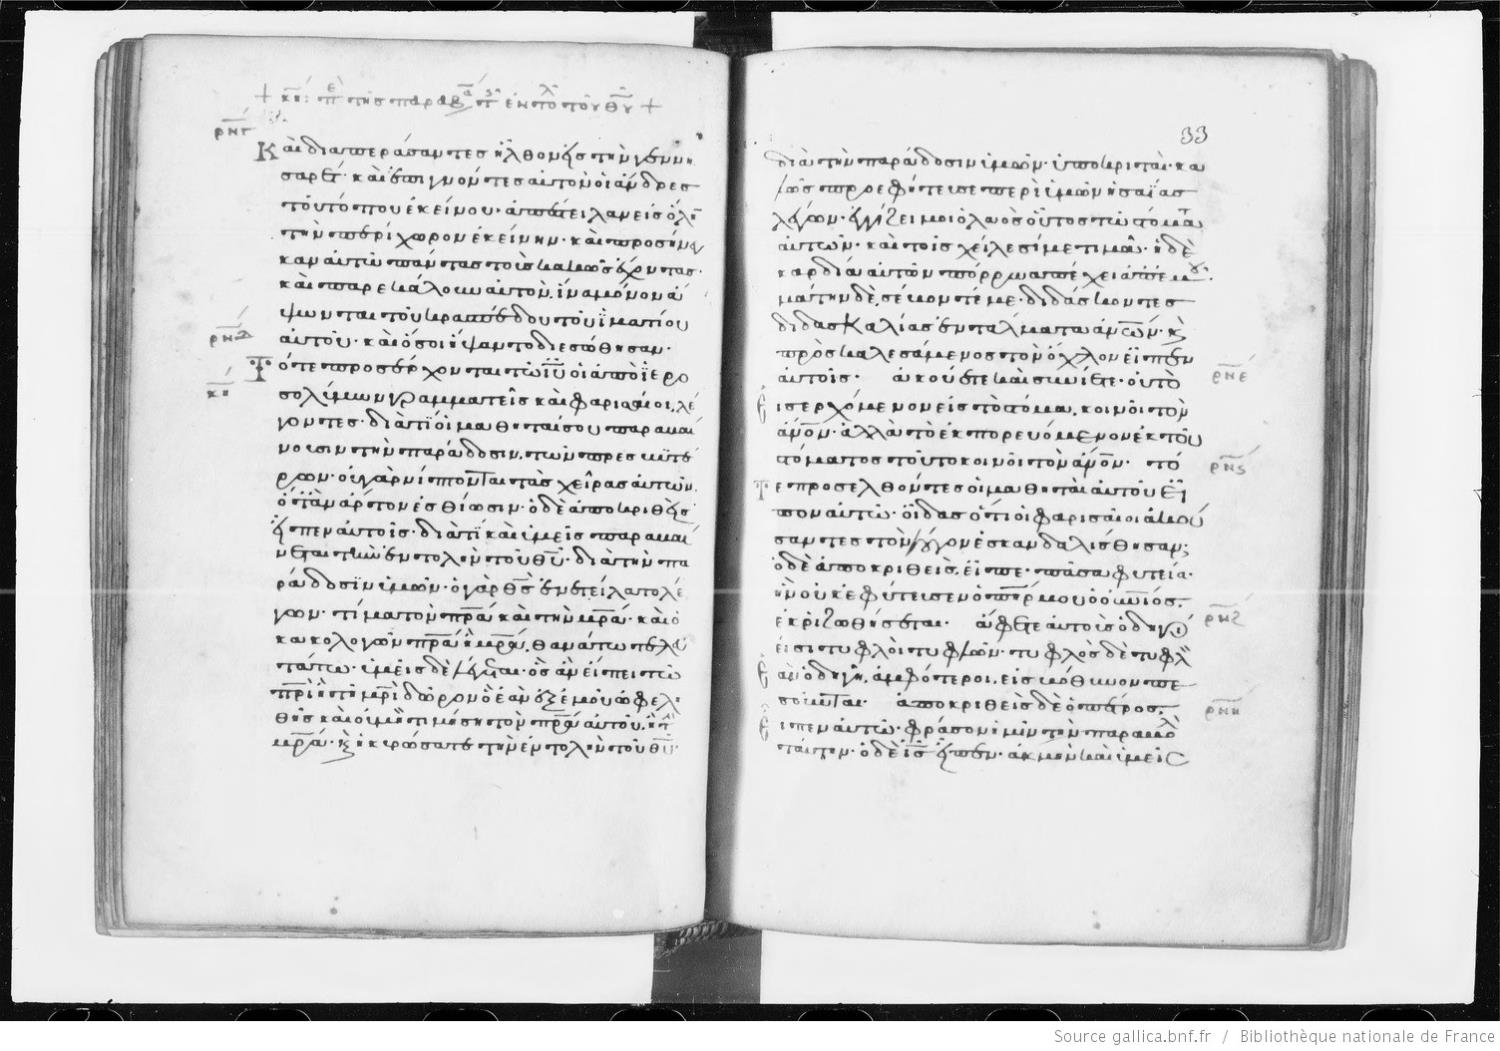 ρνγ
Και διαπεράσαντες ἦλθον εἰς τὴν γεννη
σαρετ· καὶ ἐπιγνόντες αὐτὸν οἱ ἄνδρες
τοῦ τόπου ἐκείνου· ἀπέστειλαν εἰς ὅλην
τὴν περίχωρον ἐκείνην· καὶ προσήνεγ
καν αὐτῶ πάντας τοὺς κακῶς ἔχοντας·
καὶ παρεκάλουν αὐτὸν, ἵνα μόνον ἅ
ψωνται τοῦ κρασπέδου τοῦ ἱματίου
ρνδ
αὐτοῦ· καὶ ὅσοι ἥψαντο διεσώθησαν·
Τότε προσέρχονται τῶ ιυ οἱ ἀπὸ ἱερο
σολύμων γραμματεῖς καὶ φαρισαῖοι, λέ
γοντες· διατί οἱ μαθηταί σου παραβαί
νουσιν τὴν παράδοσιν, τῶν πρεσβυτέ
ρων· οὐ γὰρ νίπτονται τὰς χεῖρας αὐτῶν,
ὅταν ἄρτον ἐσθίωσιν· ὁ δὲ ἀποκριθεὶς
εἶπεν αὐτοῖς· διατί καὶ ὑμεῖς παραβαί
νεται τὴν ἐντολὴν τοῦ θυ· διὰ τὴν πα
ράδοσιν ὑμῶν· ὁ γὰρ θς ἐνετείλατο λέ
γων· τίμα τὸν πρα καὶ τὴν μρα· καὶ ὁ
κακολογῶν πρα ἢ μρα, θανάτω τελευ
τάτω· ὑμεῖς δὲ λέγεται· ὃς ἂν εἴπει τῶ
πρι ἢ τῆ μρι δῶρον ὃ ἐὰν ἐξ ἐμοῦ ὠφελη
θῆς καὶ οὐ μὴ τιμήση τὸν πρα αὐτοῦ, ἢ τὴν
μρα· καὶ ἠκυρώσατε τὴν ἐντολὴν τοῦ θυ·
33
διὰ τὴν παράδοσιν ὑμῶν· ὑποκριταὶ· κα
λῶς προεφήτευσε περὶ ὑμῶν ἡσαΐας
λέγων· ἐγγίζει μοι ὁ λαὸς οὗτος τῶ στόματι
αὐτῶν· καὶ τοῖς χείλεσί με τιμᾶ· ἡ δὲ
καρδία αὐτῶν πόρρω ἀπέχει ἀπ' ἐμοῦ·
μάτην δὲ, σέβονταί με· διδάσκοντες
διδασκαλίας ἐντάλματα ἀνων· κ
προσκαλεσάμενος τὸν ὄχλον εἶπεν
αὐτοῖς· ἀκούετε καὶ συνίετε· οὐ τὸ
ρνε
εἰσερχόμενον εἰς τὸ στόμα, κοινοῖ τὸν
ἀνον· ἀλλὰ τὸ ἐκπορευόμενον ἐκ τοῦ
στόματος τοῦτο κοινοῖ τὸν ἀνον· τό
ρνς
τε προσελθόντες οἱ μαθηταὶ αὐτοῦ εἶ
πον αὐτῶ· οἶδας ὅτι οἱ φαρισαῖοι ἀκού
σαντες τὸν λόγον ἐσκανδαλίσθησαν;
ὁ δὲ ἀποκριθεὶς, εἶπε· πᾶσα φυτεία·
ἣν οὐκ ἐφύτευσεν ὁ πηρ μου ὁ οὐνιός.
ρνζ
ἐκριζωθήσεται· ἄφετε αὐτοὺς ὁδηγοί
εἰσι τυφλοὶ τυφλῶν· τυφλὸς δὲ τυφλὸν
ἐὰν ὁδηγῆ, ἀμφότεροι, εἰς βόθυνον πε
σοῦνται· ἀποκριθεὶς δὲ ὁ πέτρος.
ρνη
εἶπεν αὐτῶ· φράσον ἡμῖν τὴν παραβολὴν
ταύτην· ὁ δὲ ις εἶπεν· ἀκμὴν καὶ ὑμεῖς
Source gallica.bnf.fr / Bibliothèque nationale de France